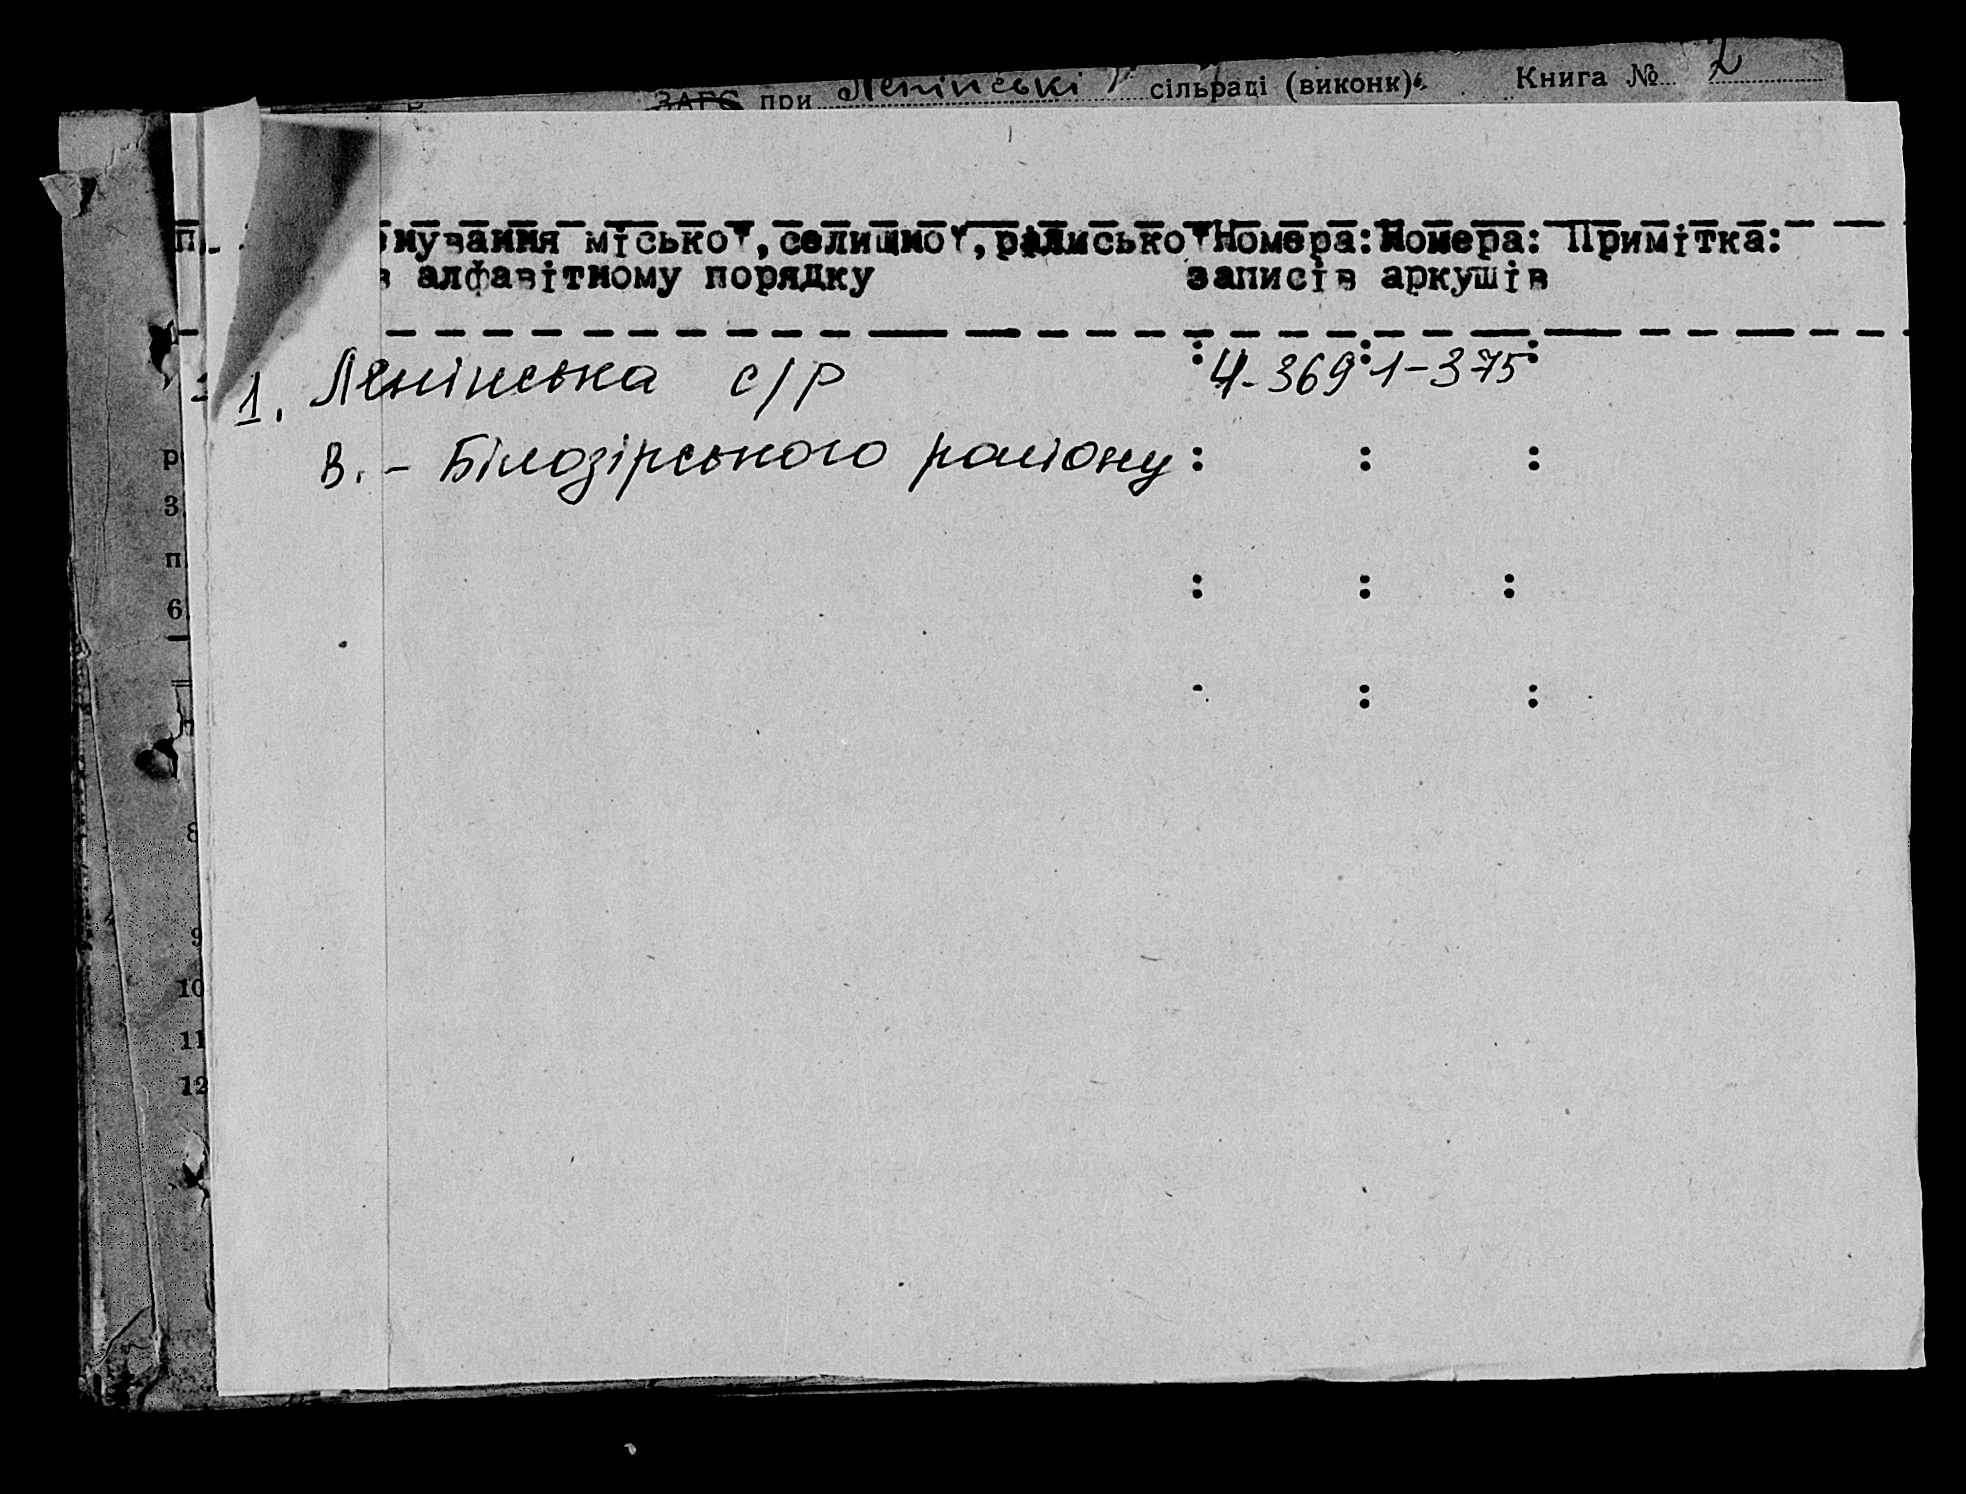 ЗАГС при Ленінські сільраді (виконк) Книга № 2
п. нування міської, селищної, радиської Номера: Номера: Примітка:
в алфавітному порядку записів аркушів
1. Ленінська с/р : 4-369 : 1-375 :
В. - Білозірського району : : :
р
3
п
6
8
9
10
11
12